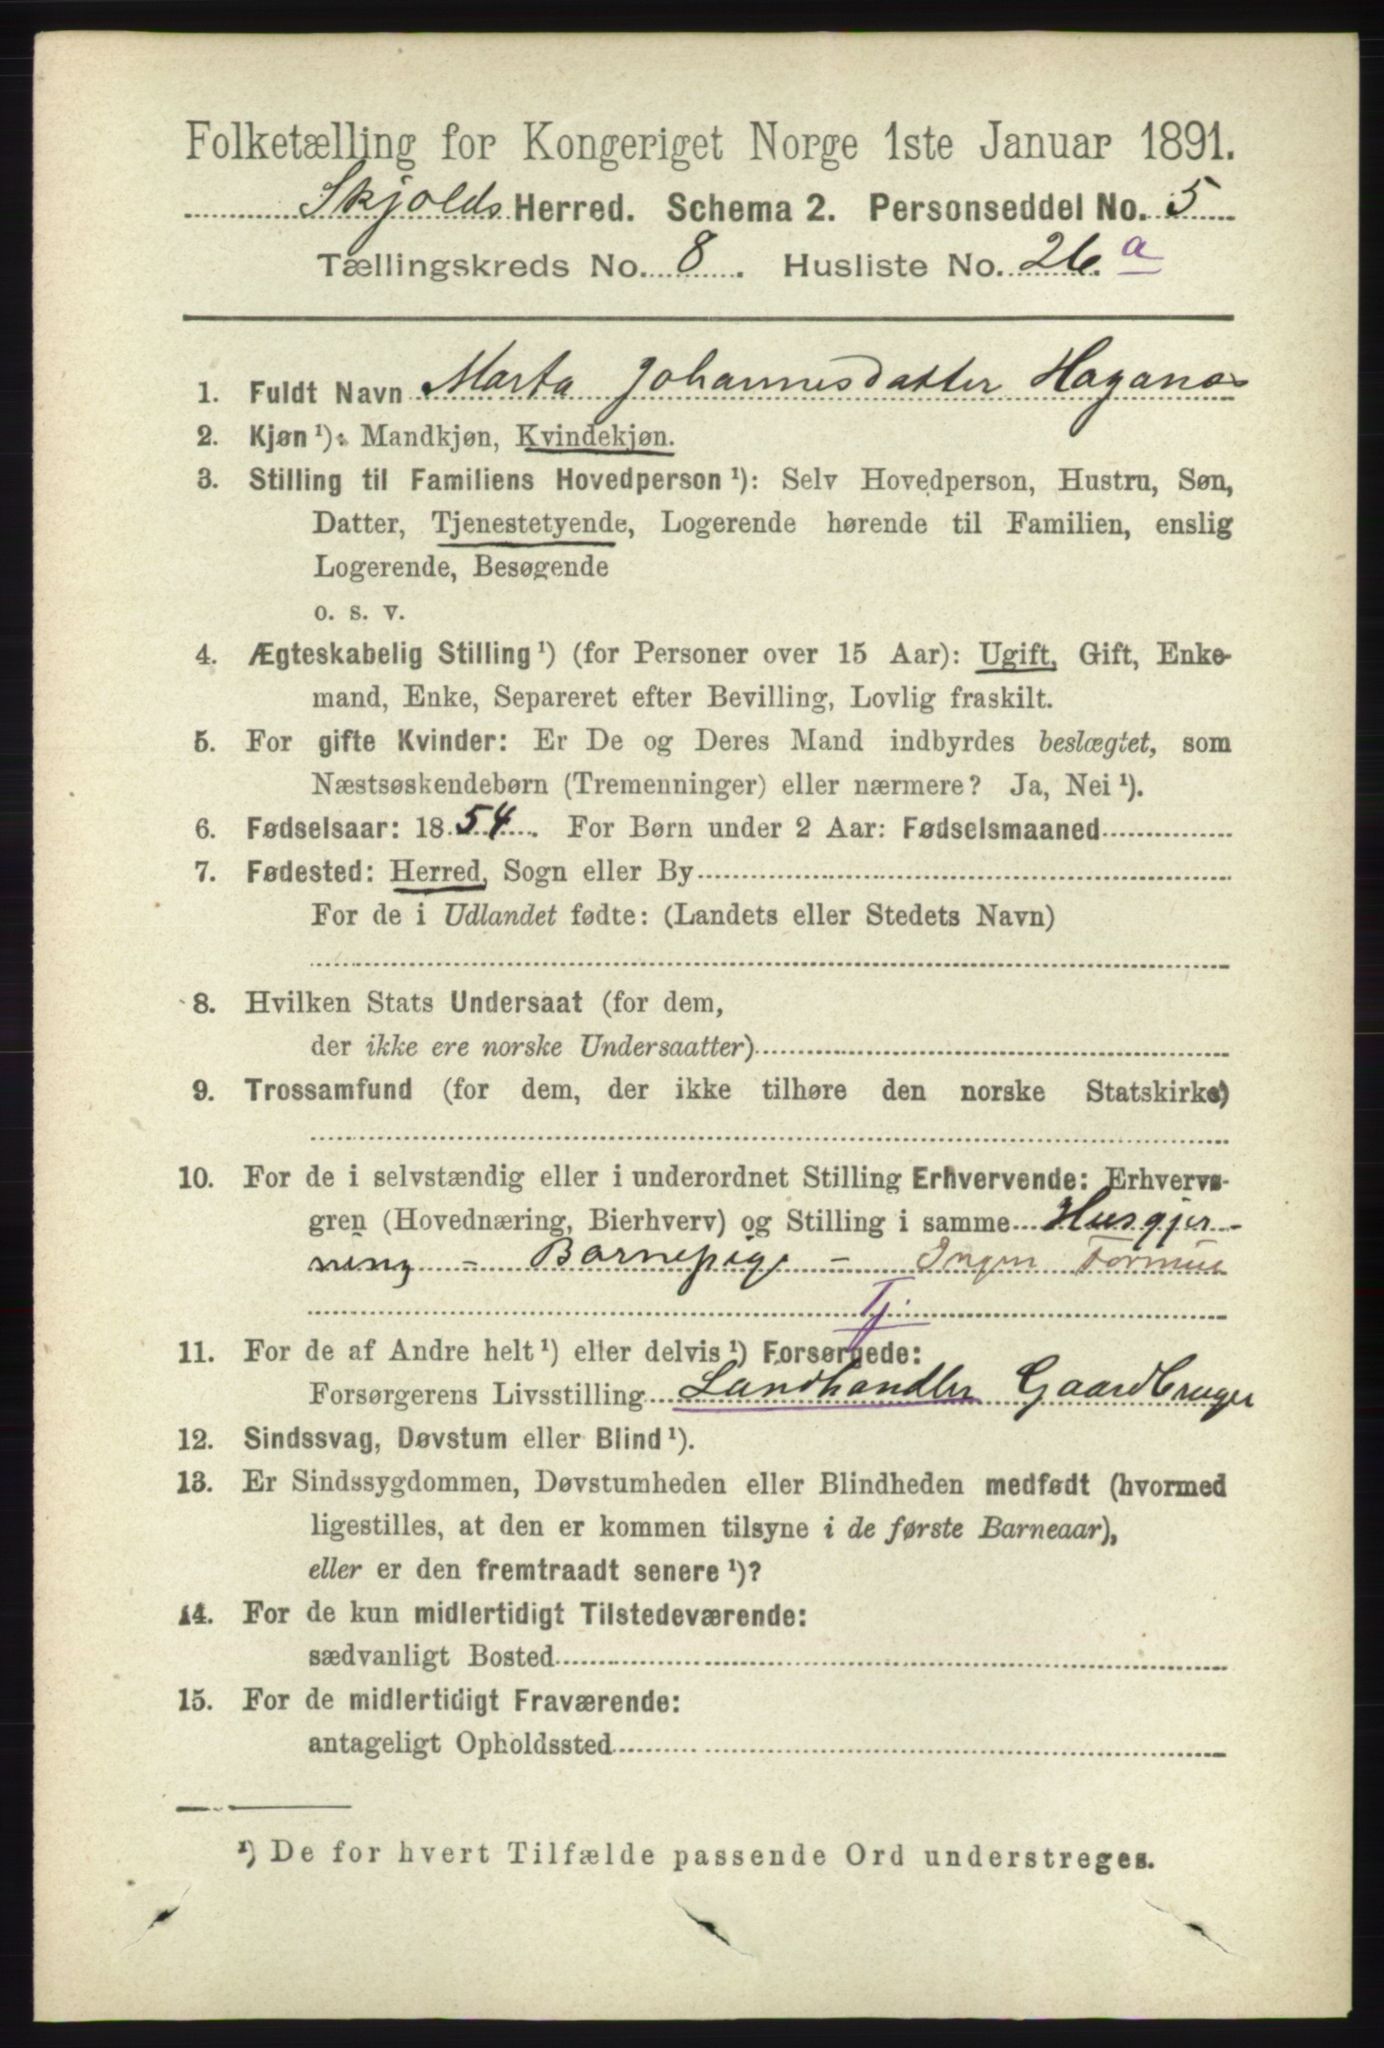 Folketælling for Kongeriget Norge 1ste Januar 1891.
Skjolds Herred. Schema 2. Personseddel No. 5
Tællingskreds No. 8. Husliste No. 26. a
1. Fuldt Navn Marta Johannesdatter Haganæs
2. Kjøn ¹): Mandkjøn, Kvindekjøn.
3. Stilling til Familiens Hovedperson ¹): Selv Hovedperson, Hustru, Søn,
Datter, Tjenestetyende, Logerende hørende til Familien, enslig
Logerende, Besøgende
o. s. v.
4. Ægteskabelig Stilling ¹) (for Personer over 15 Aar): Ugift, Gift, Enke-
mand, Enke, Separeret efter Bevilling, Lovlig fraskilt.
5. For gifte Kvinder: Er De og Deres Mand indbyrdes beslægtet, som
Næstsøskendebørn (Tremenninger) eller nærmere? Ja, Nei ¹).
6. Fødselsaar: 1854. For Børn under 2 Aar: Fødselsmaaned
7. Fødested: Herred, Sogn eller By
For de i Udlandet fødte: (Landets eller Stedets Navn)
8. Hvilken Stats Undersaat (for dem,
der ikke ere norske Undersaatter)
9. Trossamfund (for dem, der ikke tilhøre den norske Statskirke)
10. For de i selvstændig eller i underordnet Stilling Erhvervende: Erhvervs-
gren (Hovednæring, Bierhverv) og Stilling i samme Husgjer-
ning - Barnepige - Ingen Formue
Tj.
11. For de af Andre helt ¹) eller delvis ¹) Forsørgede:
Forsørgerens Livsstilling Landhandler Gaardbruger
12. Sindssvag, Døvstum eller Blind ¹).
13. Er Sindssygdommen, Døvstumheden eller Blindheden medfødt (hvormed
ligestilles, at den er kommen tilsyne i de første Barneaar),
eller er den fremtraadt senere ¹)?
14. For de kun midlertidigt Tilstedeværende:
sædvanligt Bosted
15. For de midlertidigt Fraværende:
antageligt Opholdssted
¹) De for hvert Tilfælde passende Ord understreges.